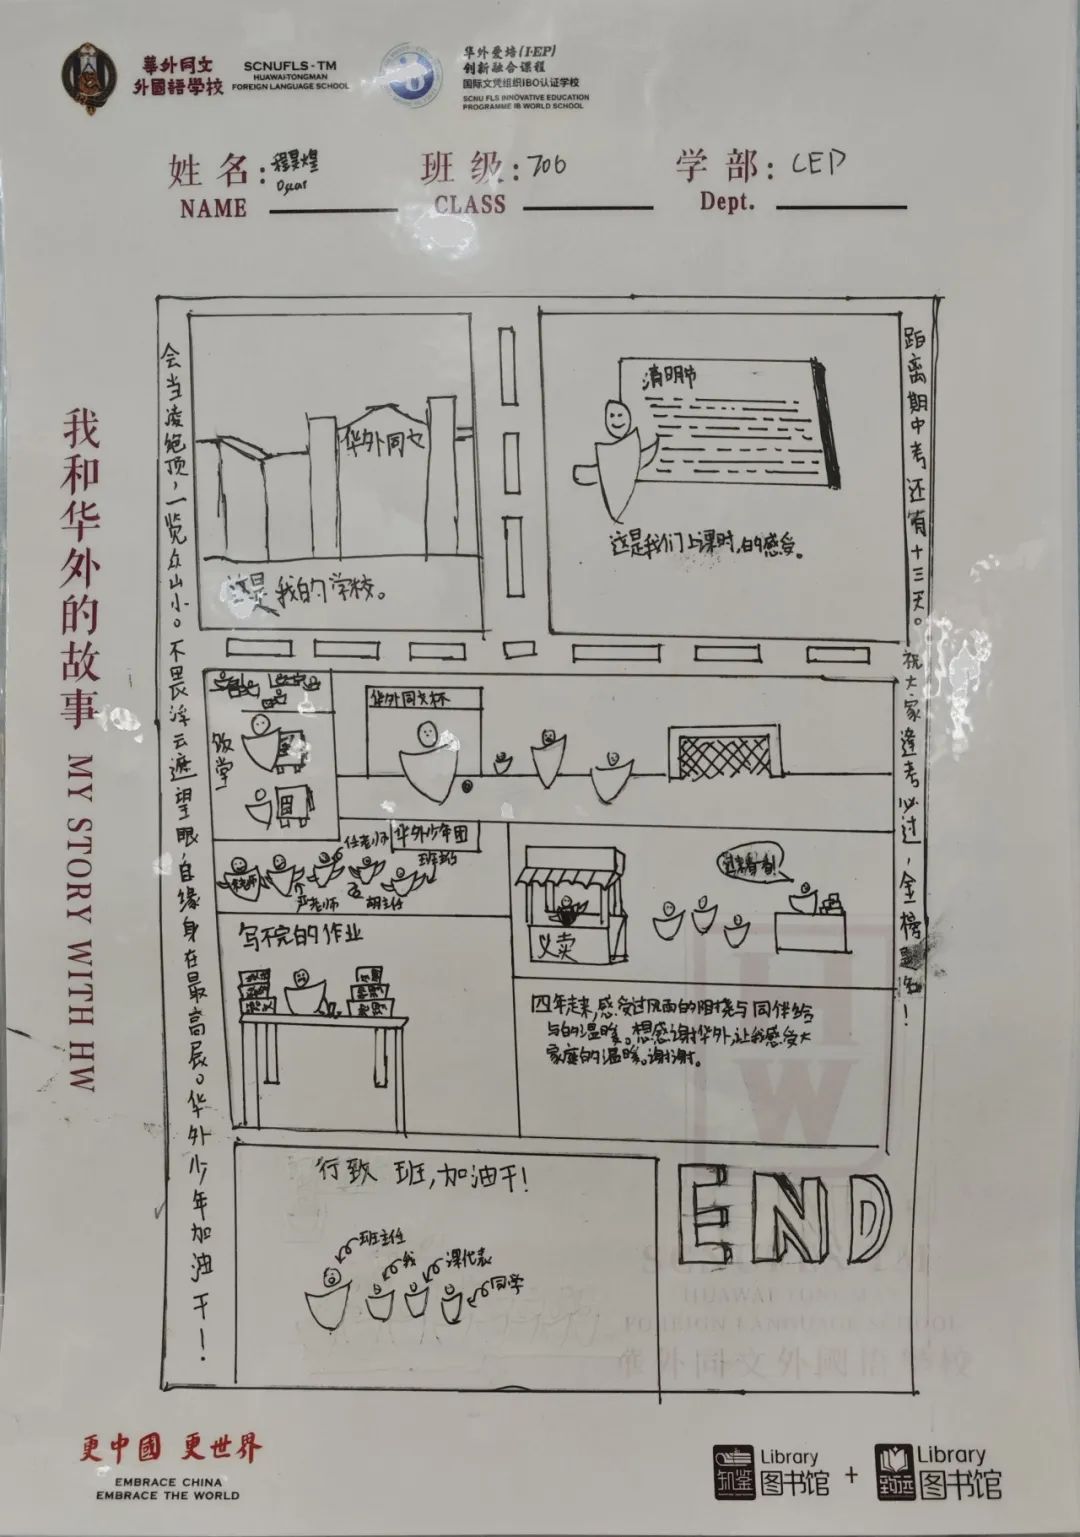 華外同文
外國語學校
SCNUFLS-TM
HUAWAI-TONGMAN
FOREIGN LANGUAGE SCHOOL
华外爱培(I·EP)
创新融合课程
国际文凭组织IBO认证学校
SCNU FLS INNOVATIVE EDUCATION
PROGRAMME IB WORLD SCHOOL
姓名:
Oscar
NAME
班级: 706
CLASS
学部: LEP
Dept.
我和华外的故事 MY STORY WITH HW
会当凌绝顶,一览众山小。不畏浮云遮望眼,自缘身在最高层。华外少年加油干!
华外同文
这是我的学校。
清明节
这是我们上课时,的感受。
距离期中考还有十三天。祝大家逢考必过,金榜题名!
饭堂
华外同文杯
华外少年团
任老师
严老师
胡主任
义卖
过来看看!
写不完的作业
四年走来,感受过风雨的阻挠与同伴给
与的温暖。想感谢华外,让我感受大
家庭的温暖。谢谢。
行致 班,加油干!
班主任
我
课代表
同学
END
更中國 更世界
EMBRACE CHINA
EMBRACE THE WORLD
知鉴
Library
图书馆
+
Library
图书馆